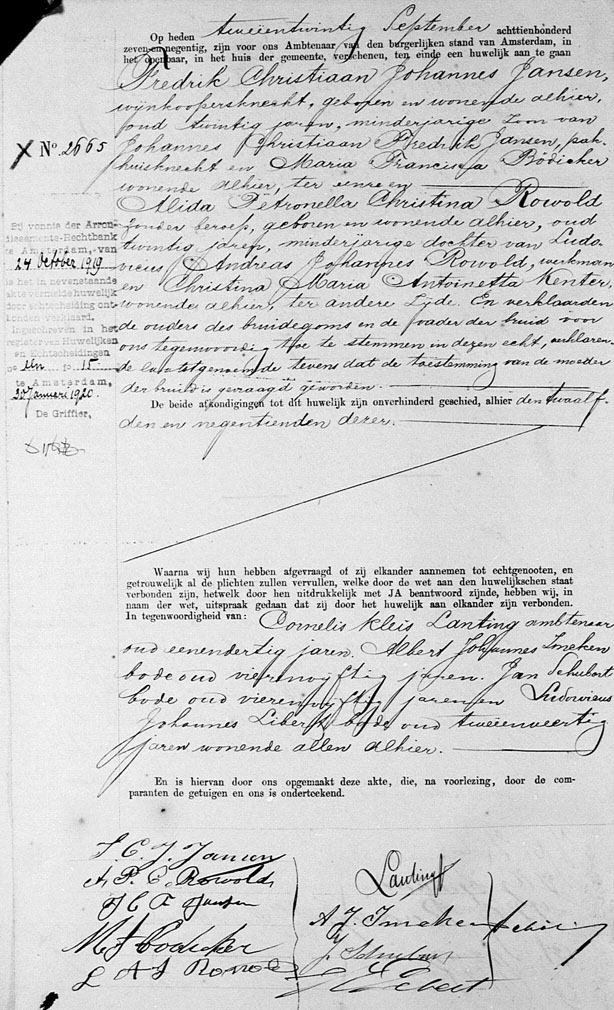 Op heden tweeëntwintig September achttienhonderd
zeven-en-negentig, zijn voor ons Ambtenaar van den burgerlijken stand van Amsterdam, in
het openbaar, in het huis der gemeente, verschenen, ten einde een huwelijk aan te gaan
Fredrik Christiaan Johannes Jansen,
wijnkoopersknecht, geboren en wonende alhier,
oud twintig jaren, minderjarige zoon van
Johannes Christiaan Fredrik Jansen, pak-
huisknecht en Maria Francisca Bödicker
wonende alhier, ter eenre en
Alida Petronella Christina Rowold
zonder beroep, geboren en wonende alhier, oud
twintig jaren, minderjarige dochter van Ludo-
vicus Andreas Johannes Rowold, werkman
en Christina Maria Antoinetta Kenter,
wonende alhier, ter andere zijde. En verklaarden
de ouders des bruidegoms en de vader der bruid voor
ons tegenwoordig toe te stemmen in dezen echt, verklaren-
de laatstgenoemde tevens dat de toestemming van de moeder
der bruid is gevraagd geworden.
De beide afkondigingen tot dit huwelijk zijn onverhinderd geschied, alhier den twaalf-
den en negentienden dezer.
X No. 2665
Bij vonnis der Arron-
dissements-Rechtbank
te Amsterdam, van
24 October 1919
is het in nevenstaande
akte vermelde huwelijk
door echtscheiding ont-
bonden verklaard.
Ingeschreven in het
register van Huwelijken
en Echtscheidingen
een fo 15
te Amsterdam,
20 Januari 1920.
De Griffier,
Waarna wij hun hebben afgevraagd of zij elkander aannemen tot echtgenooten, en
getrouwelijk al de plichten zullen vervullen, welke door de wet aan den huwelijkschen staat
verbonden zijn, hetwelk door hen uitdrukkelijk met JA beantwoord zijnde, hebben wij, in
naam der wet, uitspraak gedaan dat zij door het huwelijk aan elkander zijn verbonden.
In tegenwoordigheid van: Cornelis Kleis Lanting ambtenaar
oud eenendertig jaren. Albert Johannes Imeken
bode oud vierenvijftig jaren. Jan Schubert
bode oud vierenvijftig jaren en Ludovicus
Johannes Libert bode oud tweeënveertig
jaren wonende allen alhier.
En is hiervan door ons opgemaakt deze akte, die, na voorlezing, door de com-
paranten de getuigen en ons is onderteekend.
F. C. J. Jansen
A. P. C. Rowold
J C F Jansen
M F Bodicker
L A J Rowold
Lanting
A. J. Imeken
J. Schubert
L J Libert